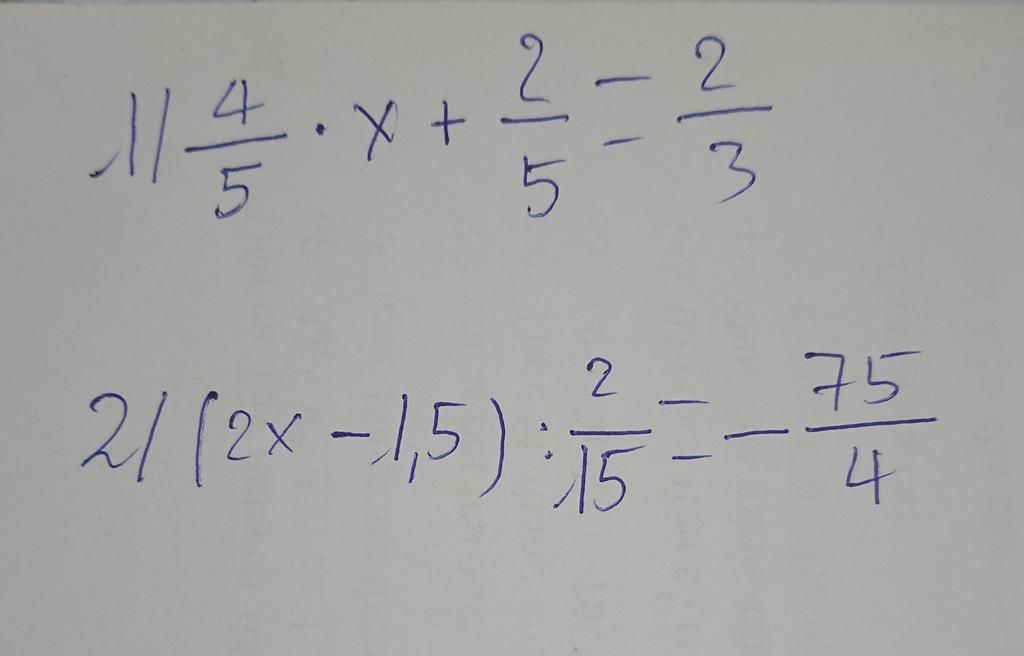 1/ 4/5 · x + 2/5 = 2/3
2/ (2x - 1,5) : 2/15 = - 75/4